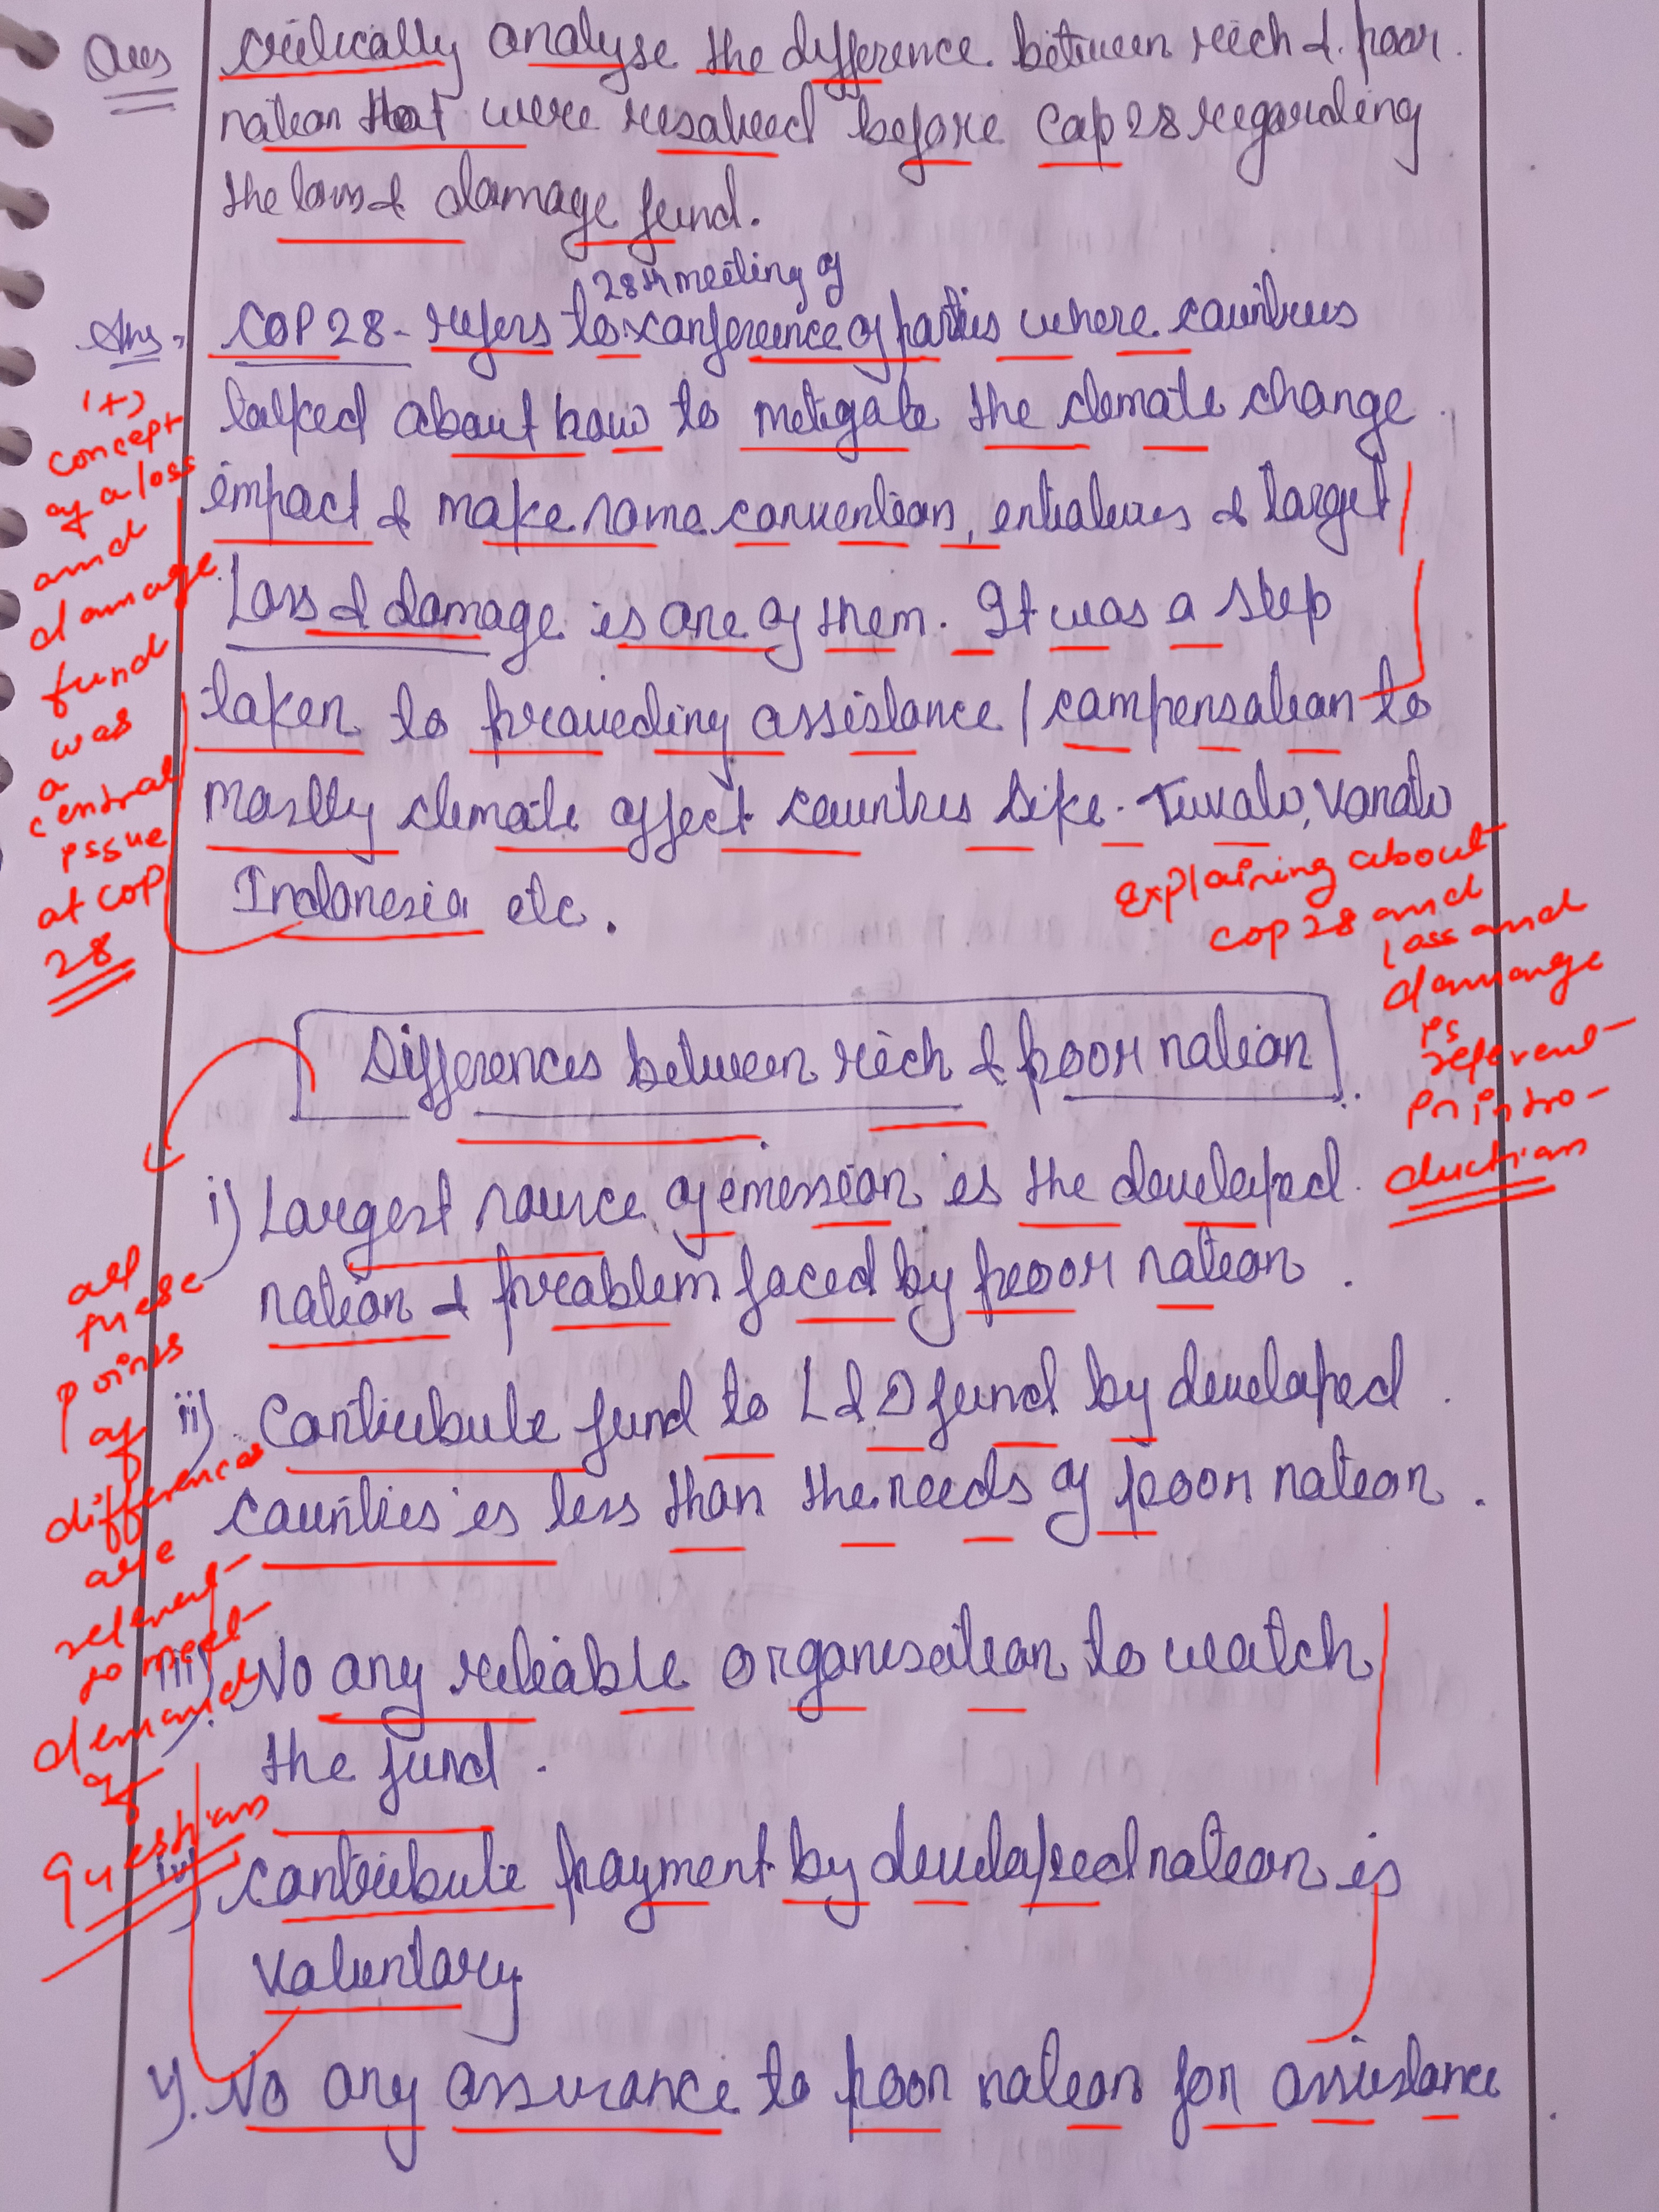 Ques critically analyse the difference between rich & poor
nation that were resolved before Cop 28 regarding
the loss & damage fund.
28th meeting of
Ans. COP 28 - refers to conference of parties where countries
talked about how to mitigate the climate change
impact & make some convention, entiatives & target
Loss & damage is one of them. It was a step
taken to proveding assistance / compensation to
mostly climate affect countres like - Tuvalu, Vanatu
Indonesia etc.
(+)
concept
of a loss
and
damage
fund
was
a
central
issue
at COP
28
Explaining about
COP 28 and
loss and
damange
is
relevent
in intro-
duction
Differences between rich & poor nation
i) Largest source of emession is the developed
nation & problem faced by poor nation.
ii) Contribute fund to L & D fund by developed
counties is less than the needs of poor nation.
iii) No any reliable organisation to watch
the fund.
iv) contribute payment by developed nation is
voluntary
v). No any assurance to poor nation for assistance
all
these
points
of
differences
are
relevent
to meet
demand
of
question